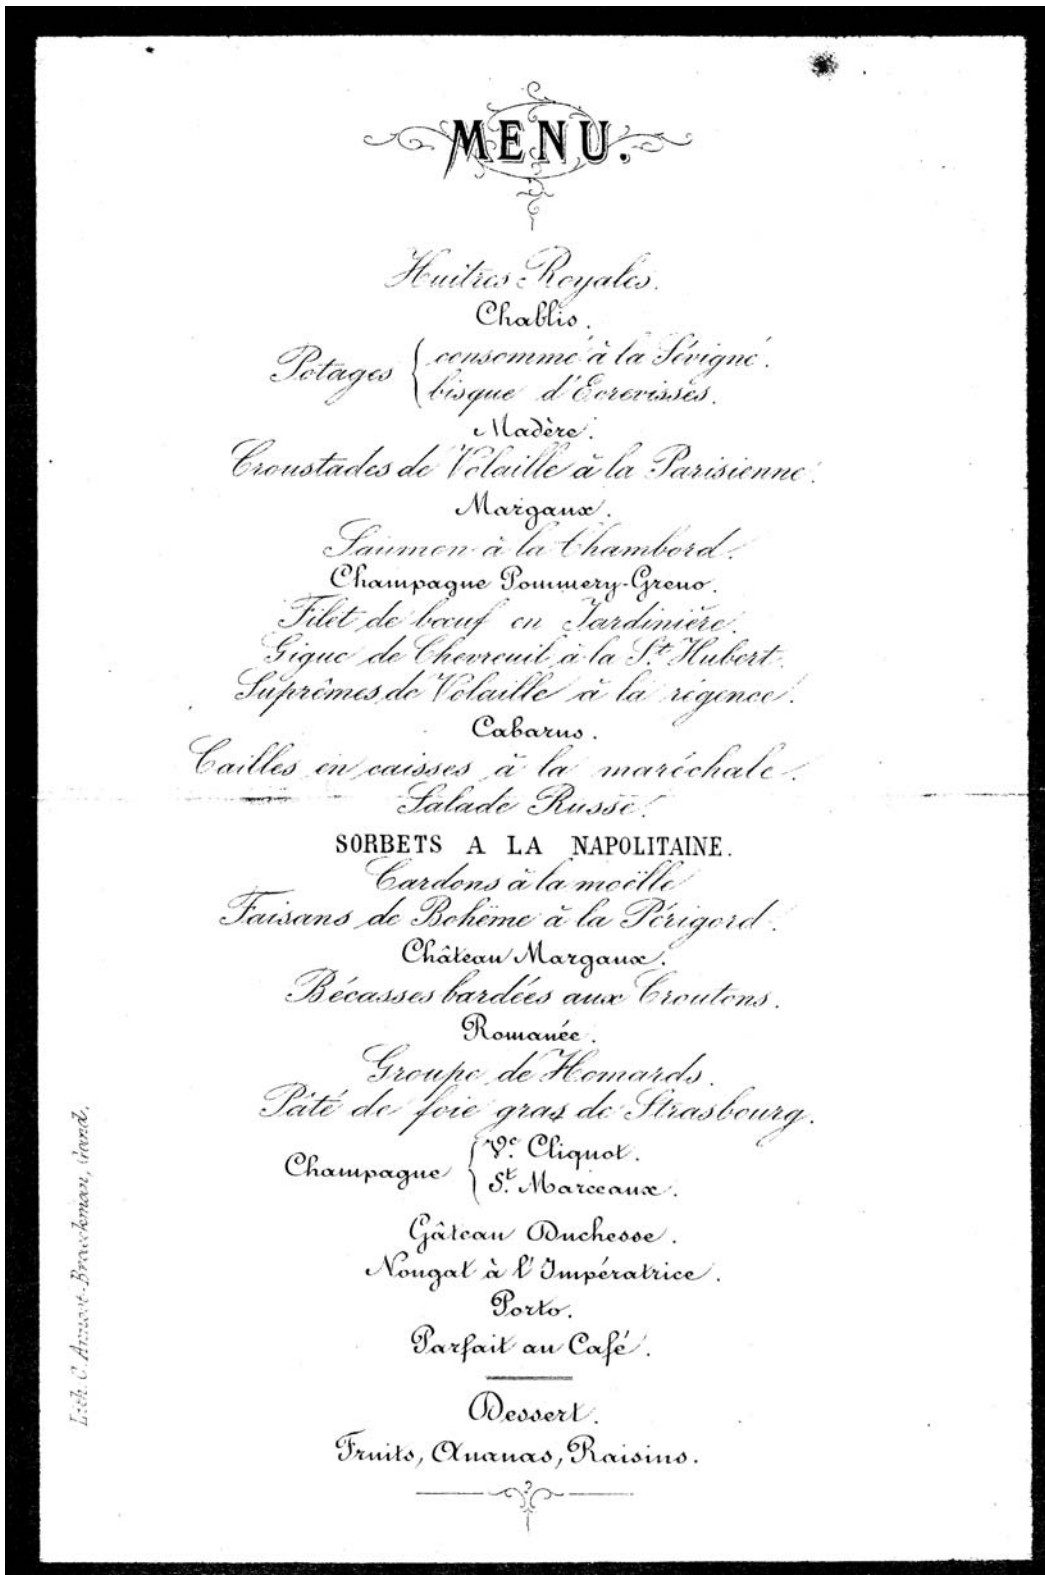 MENU.
Huitres Royales.
Chablis.
Potages { consommé à la Sévigné.
bisque d'Ecrevisses.
Madère.
Croustades de Volaille à la Parisienne.
Margaux.
Saumon à la Chambord.
Champagne Pommery-Greno.
Filet de bœuf en Jardinière.
Gigue de Chevreuil à la St Hubert.
Suprêmes de Volaille à la régence.
Cabarus.
Cailles en caisses à la maréchale.
Salade Russe.
SORBETS A LA NAPOLITAINE.
Cardons à la moëlle
Faisans de Bohême à la Périgord.
Château Margaux.
Bécasses bardées aux Croutons.
Romanée.
Groupe de Homards.
Pâté de foie gras de Strasbourg.
Champagne { Ve. Cliquot.
St. Marceaux.
Gâteau Duchesse.
Nougat à l'Impératrice.
Porto.
Parfait au Café.
Dessert.
Fruits, Ananas, Raisins.
Lith. C. Annoot-Braeckman, Gand.